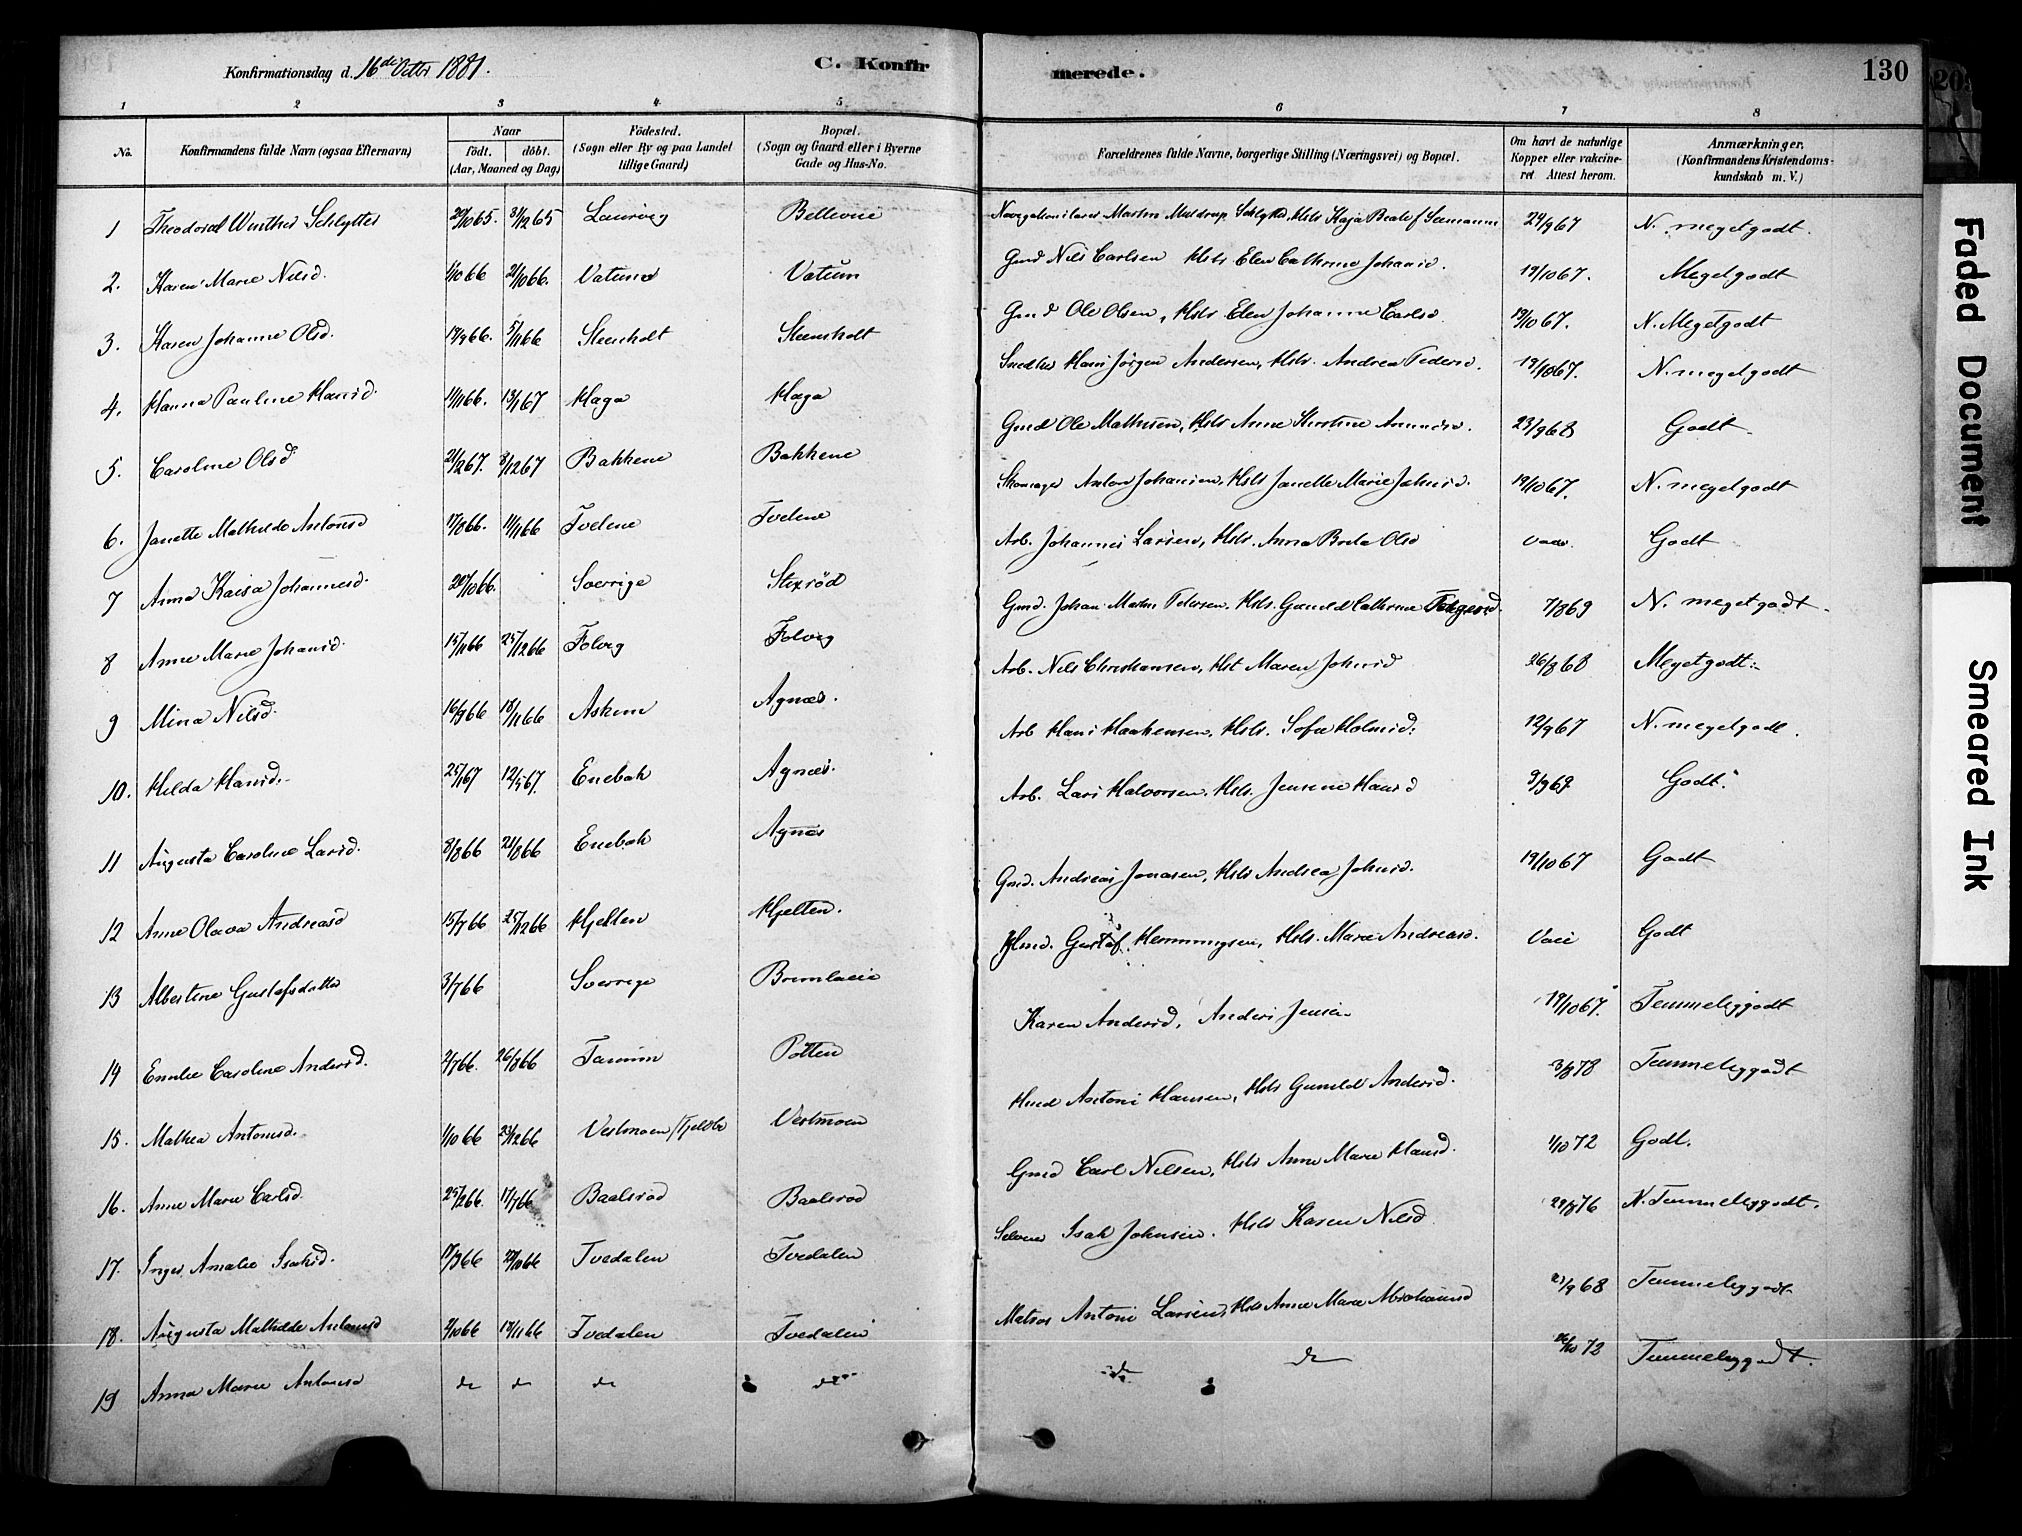 Konfirmationsdag d. 16de Octbr 1881. C. Konfirmerede. 130
1 2 3 4 5 6 7 8
No. Konfirmandens fulde Navn (ogsaa Efternavn) Naar født. døbt. (Aar, Maaned og Dag) Fødested. (Sogn eller By og paa Landet tillige Gaard) Bopæl. (Sogn og Gaard eller i Byerne Gade og Hus-No. Forældrenes fulde Navne, borgerlige Stilling (Næringsvei) og Bopæl. Om havt de naturlige Kopper eller vakcineret Attest herom. Anmærkninger. (Konfirmandens Kristendomskundskab m. V.)
1 Winther Schlytter 29/10 65. 31/12 65 Laurvig Bellevue Martin Schlytter, Hstr Kaja 24/9 67 N. megetgodt.
2. Karen Marie Nilsd. 1/10 66 21/10 66. Vatum Gmd Nils Carlsen Hstr Elen Cathrine Johansd. 19/10 67. Megetgodt
3. Karen Johanne Olsd. 19/9 66. 5/11 66 Steenholt Steensholt Gmd Ole Olsen, Hstr Elen Johanne Carlsd 19/10 67. N. Megetgodt
4. Hanna Pauline Hansd. 11/11 66. 13/1 67 Haga Haga Hans Jørgen Andersen, Hstr. Andrea Pedersd. 19/10 67. N. megetgodt
5. Caroline Olsd 21/2 67. Bakkene Bakkene Gmd Ole Mathisen, Hstr Anne Kirstine 23/9 68 Godt
6. Janette Mathilde Antonsd 11/11 66 Tvetene Tvetene Skomager Anton Johansen, Hstr Janette Marie Johnsd. 19/10 67. N. megetgodt
7 Anna Kaisa Johannesd. 20/10 66. Sverrige Stixrød Arb. Johannes Larsen, Hstr. Anna Olsd Godt
8 Anne Marie Johansd. 15/11 66 25/12 66 Folvig Folvig Gmd. Johan Martin Pedersen. Hstr. Gunild Cathrine 7/8 69 N. megetgodt.
9 Mina Nilsd. 16/9 66 18/11 66 Askim Agnæs. Arb. Nils Christiansen, Hst Maren Johnsd 26/8 68 Megetgodt.
10. Hilda Hansd. 25/1 67 12/5 67. Enebak Agnæs. Arb Hans Haakensen, Hstr. Sofie Holmsd. 12/9 67 N. megetgodt.
11 Augusta Caroline Larsd. 8/8 66 Enebak Agnæs Arb. Lars Halvorsen. Hstr. Jensine Hansd 9/9 69 Godt.
12 Anne Olava Andreasd 15/7 66 25/12 66 Hjelten Hjelten. Gmd. Andreas Jonasen, Hstr Andrea Johnsd. 19/10 67 Godt
13 Albertine Gustafsdatter 3/7 66 Sverrige Gustaf Hemmingsen, Hstr. Marie Andreasd. Godt
14 Emilie Caroline Andersd. 2/7 66. 26/8 66 Tanum Potten Karen Andersd, Anders Jensen 19/10 67. Temmeliggodt
15. Mathea Antonsd. 1/10 66 Vestmoen Vestmoen Hmd Antoni Hansen, Hstr Gunild Andersd. 3/8 78 Temmeliggodt
16. Anne Marie Carlsd. 25/2 66. 17/7 66 Baalsrød Baalsrød Gmd Carl Nilsen, Hstr Anne Marie Hansd. 1/10 72 Godt.
17. Inger Amalie Isaksd. 17/9 66 Tvedalen Tvedalen Isak Johnsen. Hstr Karen Nilsd. N. Temmeliggodt.
18. Augusta Mathilde Antonsd 2/10 66 Tvedalen Tvedalen Matros Antoni Larsen, Hstr Anne Marie Abrahamsd 21/9 68 Temmeliggodt
19 Anna Marie Antonsd do do do do do do 72 Temmeliggodt.
Faded Document
Smeared Ink